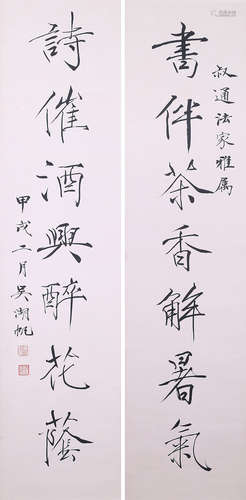 叔通法家雅属
書伴茶香解暑氣
詩催酒興醉花蔭
甲戌二月吴湖帆